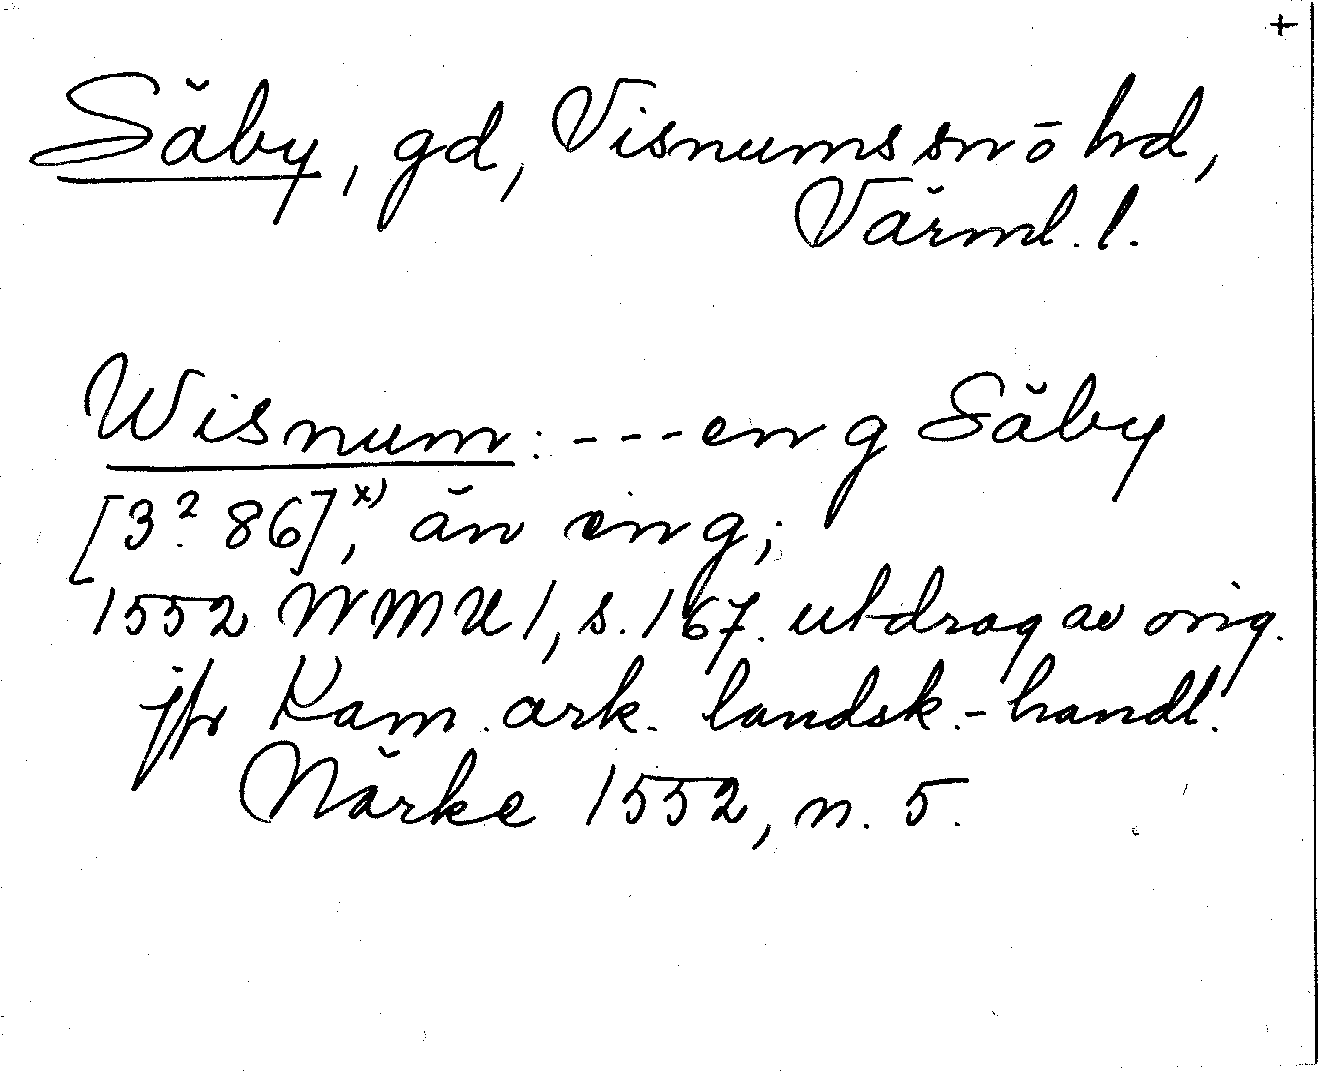 +
Säby, gd, Visnums sn ö hd,
Värml. l.
Wisnum: ---en g Säby
[3² 86]ˣ⁾, än ein g;
1552 WMU 1, s. 167. utdrag av orig.
jfr Kam. ark. landsk.-handl.
Närke 1552, n. 5.